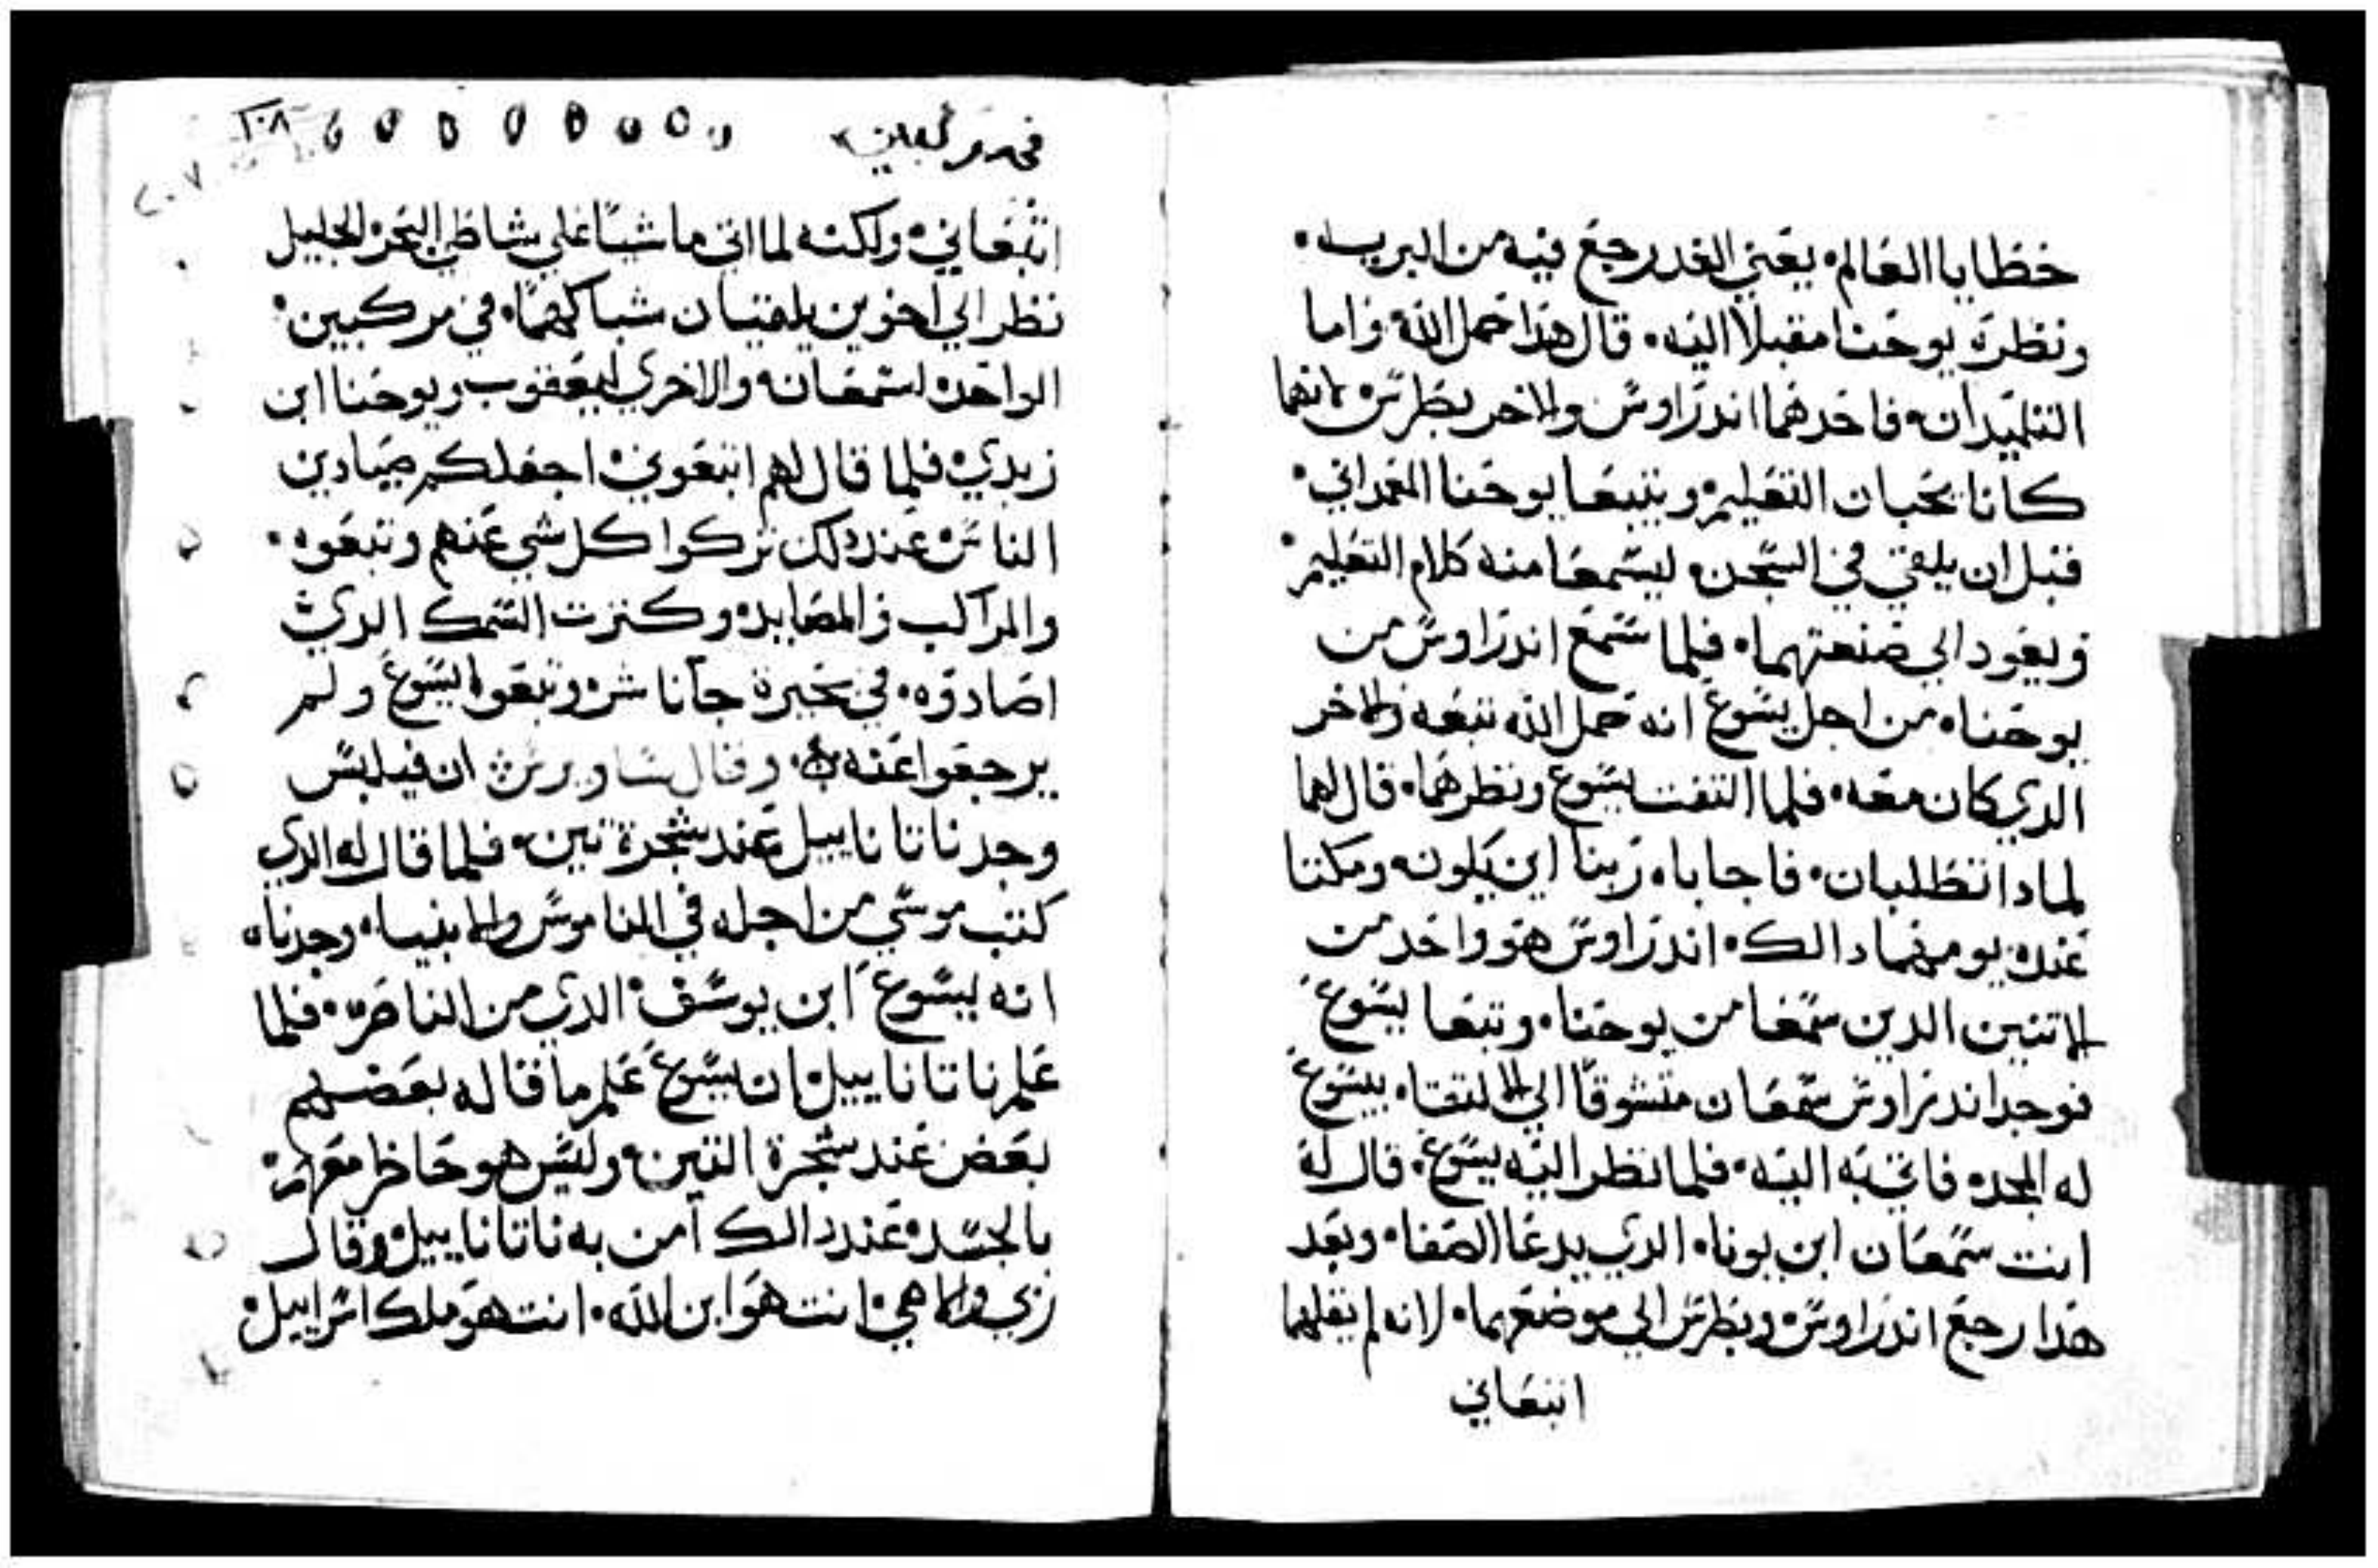 خطايا العالم. يعني الغد رجع فيه من البريه.
ونظره يوحنا مقبلا اليه. قال هذا حمل الله واما
التلميدان. فاحدهما اندراوس والاخر بطرس لانهما
كانا يحبان التعليم. ويتبعا يوحنا المعمداني.
قبل ان يلقي في السجن. ليسمعا منه كلام التعليم.
ويعود الي صنعتهما. فلما سمع اندراوس من
يوحنا. من اجل يسوع انه حمل الله تبعه والاخر
الدي كان معه. فلما التفت يسوع ونظرهما. قال لهما
لمادا تطلبان. فاجابا. ربنا اين يكون. ومكتا
عنده يومهما دالك. اندراوس هو واحد من
الاتنين الدين سمعا من يوحنا. وتبعا يسوع
فوجد اندراوس سمعان متشوقا الي التقا. يسوع
له المجد. فاتي به اليه. فلما نظر اليه يسوع. قال له
انت سمعان ابن يونا. الدي يدعا الصفا. وبعد
هدا رجع اندراوس وبطرس الي موضعهما. لانه لم يقل لهما
اتبعاني
٢٠٨
٢٠٧
اتبعاني. ولكنه لما اتي ماشيا علي شاطي البحر الجليل
نظر الي اخوين يلقيان شباكهما. في مركبين.
الواحده لسمعان. والاخري ليعقوب ويوحنا ابن
زبدي. فلما قال لهم اتبعوني. اجعلكم صيادين
الناس. عند دلك تركوا كل شي عنهم وتبعوه.
والمراكب والمصايد. وكترت السمك الدي
اصادوه. في بحيرة جاناشر. وتبعوا يسوع ولم
يرجعوا عنه. وقال ساويرس ان فيلبس
وجد ناتاناييل عند شجرة تين. فلما قال له الدي
كتب موسي من اجله في الناموس والانبيا. وجدناه
انه يسوع ابن يوسف. الدي من الناصره. فلما
علم ناتاناييل ان يسوع علم ما قاله بعضهم
بعض عند شجرة التين. وليس هو حاظر معهم
بالجسد. عند دالك امن به ناتاناييل. وقال
ربي والاهي. انت هو ابن الله. انت هو ملك اسراييل.